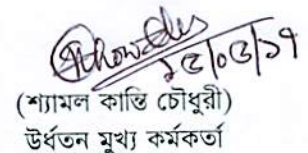 ১৫/০৫/১৭
(শ্যামল কান্তি চৌধুরী)
উর্ধতন মুখ্য কর্মকর্তা